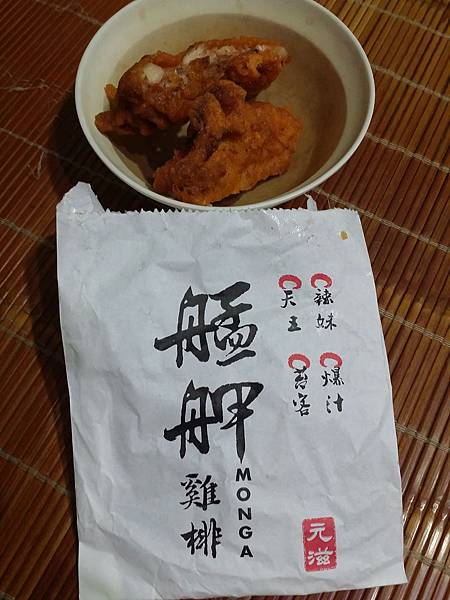 艋舺
雞排
MONGA
辣妹
天王
爆汁
苔客
元滋